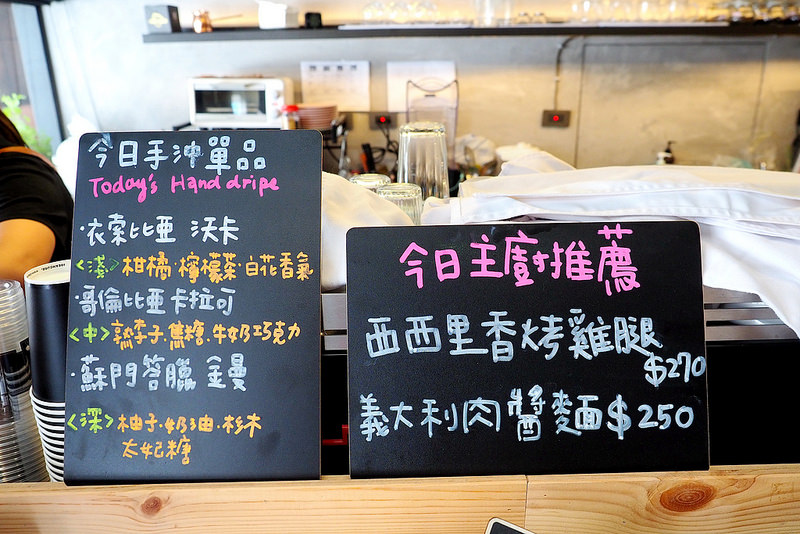 今日手沖單品
Today's Hand dripe
·衣索比亞 沃卡
<淺>柑橘·檸檬茶·白花香氣
·哥倫比亞卡拉可
<中>熟李子·焦糖·牛奶巧克力
·蘇門答臘 金曼
<深>柚子·奶油·杉木
太妃糖
今日主廚推薦
西西里香烤雞腿
$270
義大利肉醬麵$250